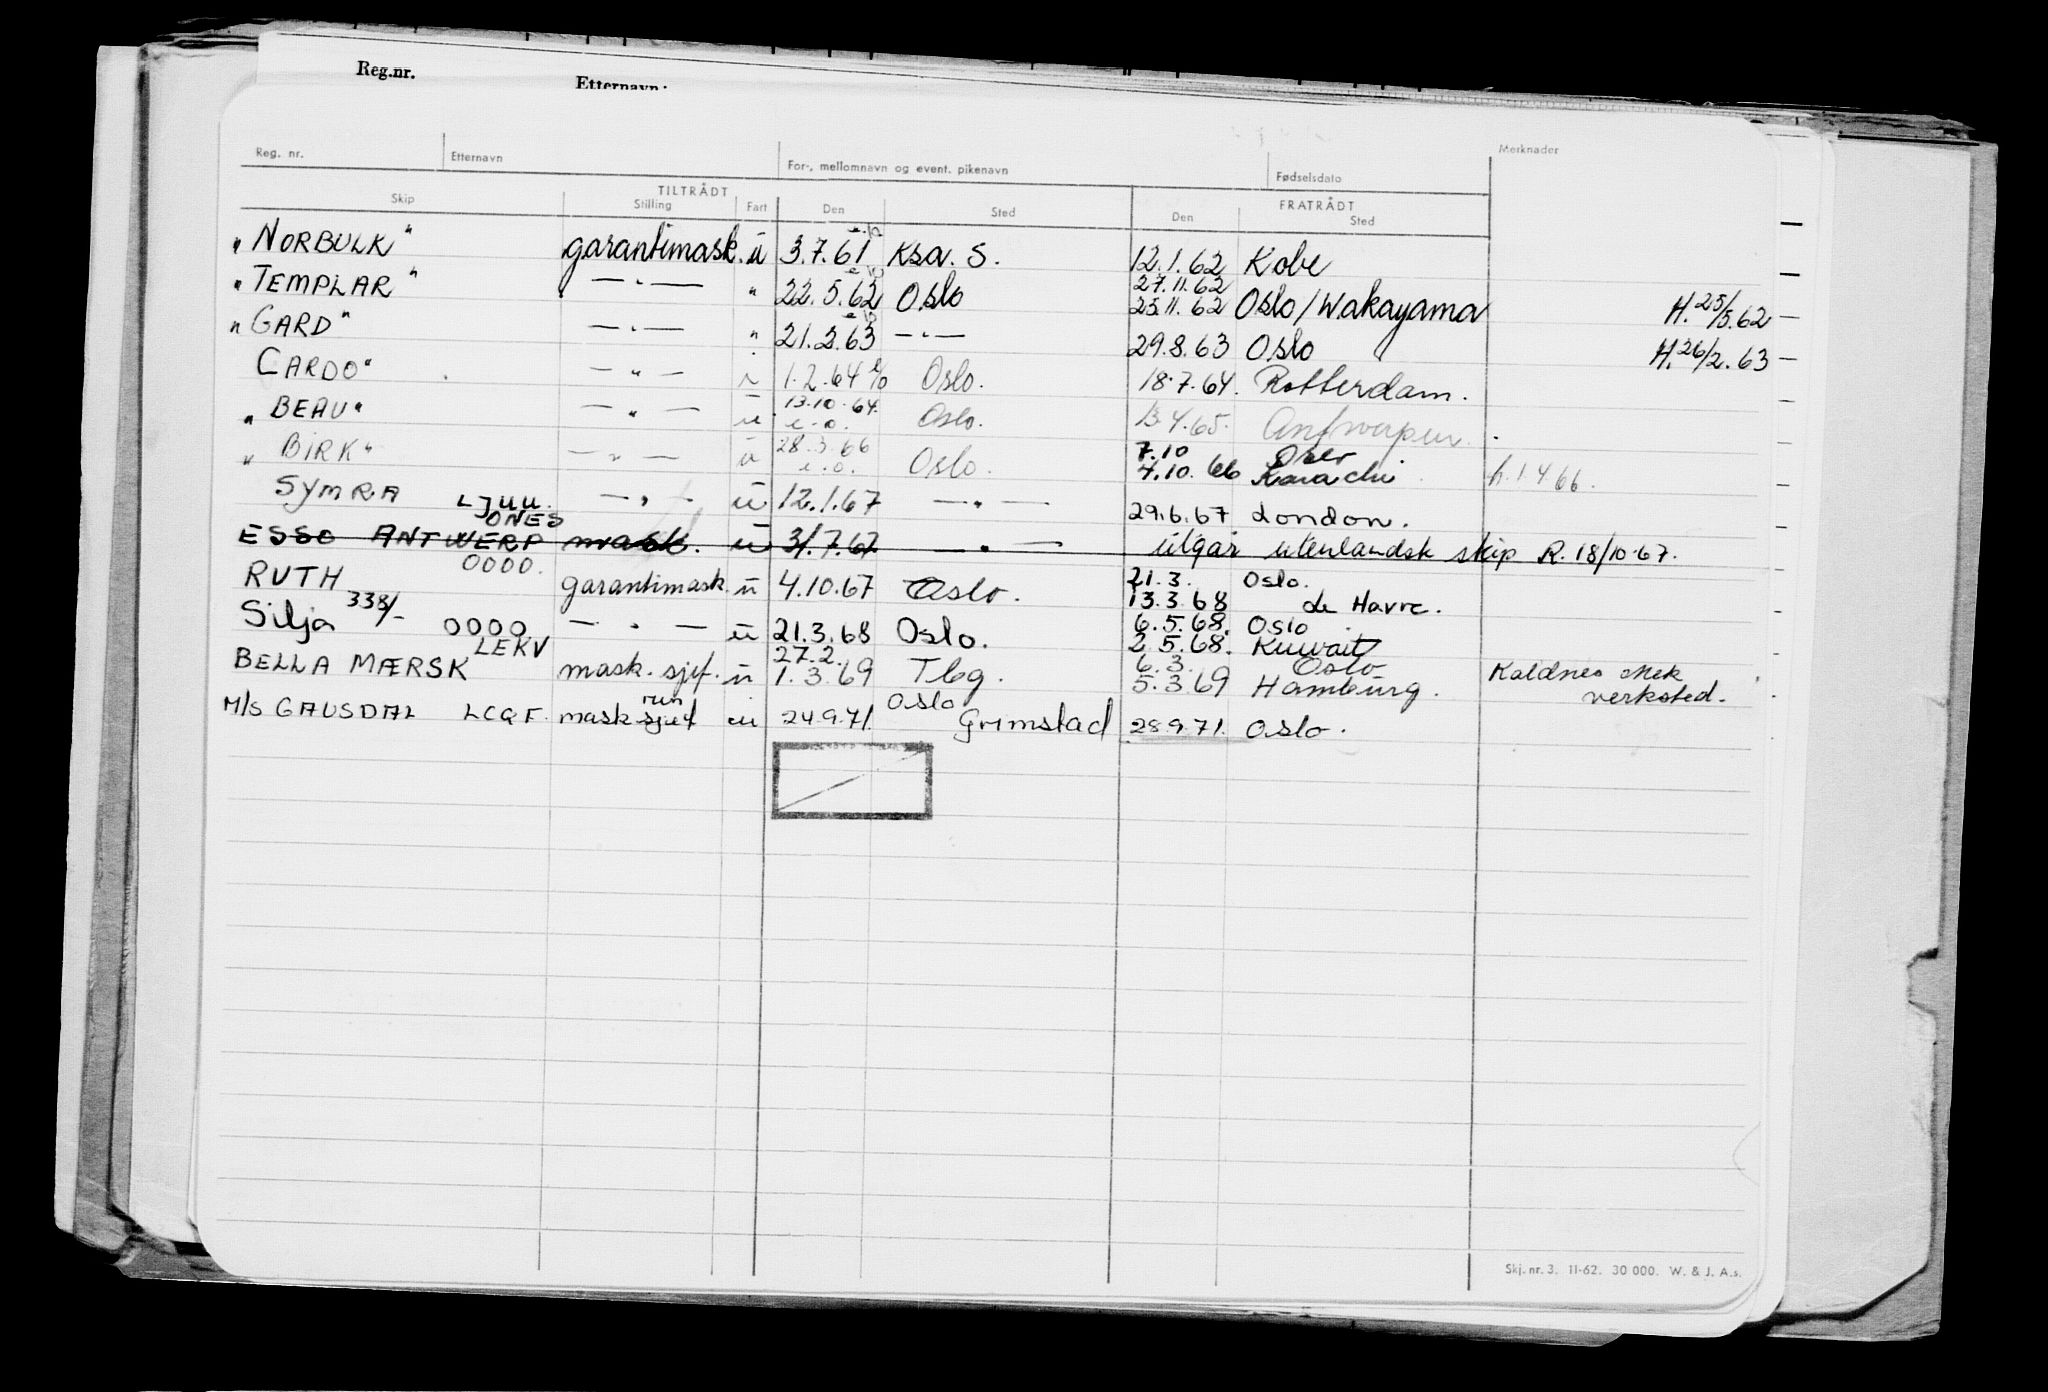 Reg.nr. Etternavn:
Reg. nr. Etternavn For-, mellomnavn og event. pikenavn Fødselsdato Merknader
TILTRÅDT FRATRÅDT
Skip Stilling Fart Den Sted Den Sted
"NORBULK" garantimask. ü 3.7.61 Ksa. S. 12.1.62 Kobe
27.11.62
"TEMPLAR" — " — " 22.5.62 Oslo 25.11.62 Oslo/Wakayama H. 25/5.62 —
"GARD" — " — " 21.2.63 — " — 29.8.63 Oslo H. 26/2.63 —
CARDO" — " — 1.2.64 e/o Oslo. 18.7.64. Rotterdam.
13.10.64.
"BEAU" — " — ü e.o. Oslo. 13.4.65. Antwerpen.
28.3.66 7.10 Oslo
"BIRK" — " — ü e.o. Oslo. 4.10.66 Karachi h. 1.4.66.
SYMRA LJUU. — " — ü 12.1.67 — " — 29.6.67 London.
ONES
ESSO ANTWERP mask. ü 31.7.67 — " — utgår utenlandsk skip R. 18/10.67.
0000. 21.3. Oslo.
RUTH garantimask. ü 4.10.67 Oslo. 13.3.68 de Havre.
338/- 6.5.68. Oslo
Silja 0000 — " — ü 21.3.68 Oslo. 2.5.68. Kuwait
LEKV 27.2. 6.3. Oslo
BELLA MÆRSK mask. sjef. ü 1.3.69 Tbg. 5.3.69 Hamburg. Kaldnes Mek verksted.
Oslo
M/S GAUSDAL LCQF. mask sjef ü 24.9.71. Grimstad 28.9.71. Oslo.
Skj. nr. 3. 11-62. 30 000. W. & J. A.s.